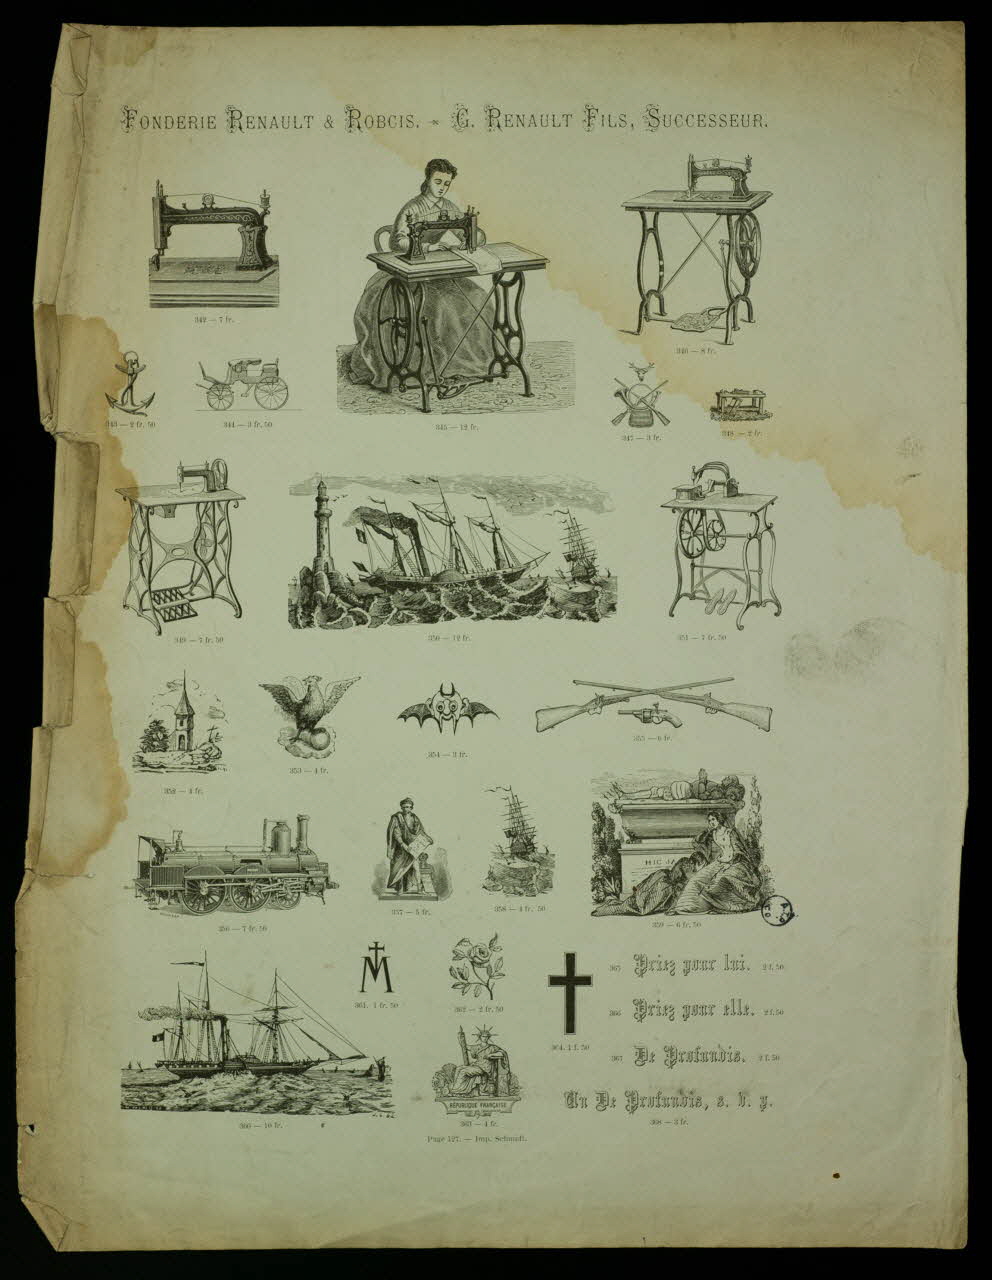 FONDERIE RENAULT & ROBCIS. - G. RENAULT FILS, SUCCESSEUR.
342 — 7 fr.
346 — 8 fr.
343 — 2 fr. 50
344 — 3 fr. 50
345 — 12 fr.
347 — 3 fr.
348 — 2 fr.
349 — 7 fr. 50
350 — 12 fr.
351 — 7 fr. 50
352 — 4 fr.
353 — 4 fr.
354 — 3 fr.
355 — 6 fr.
HIC JA
356 — 7 fr. 50
357 — 5 fr.
358 — 4 fr. 50
359 — 6 fr. 50
M
361. 1 fr. 50
362 — 2 fr. 50
364. 1 f. 50
365 Priez pour lui. 2 f. 50
366 Priez pour elle. 2 f. 50
367 De Profundis. 2 f. 50
Un De Profundis, s. v. p.
368 — 3 fr.
RÉPUBLIQUE FRANÇAISE
360 — 10 fr.
363 — 4 fr.
Page 127. — Imp. Schmidt.